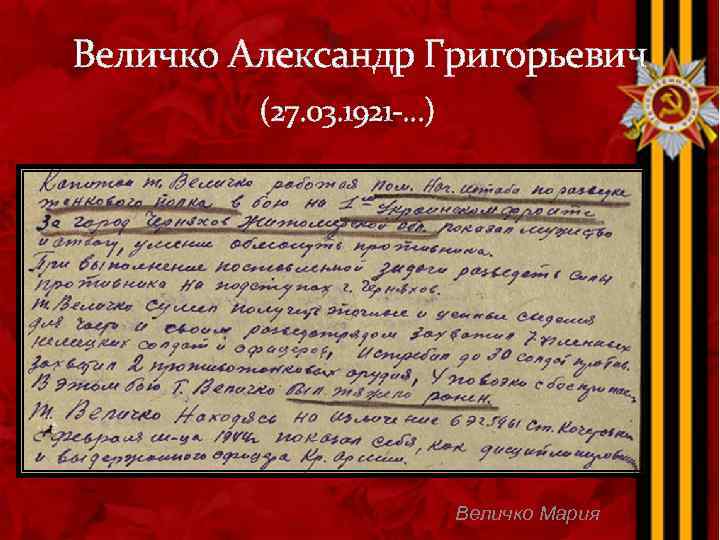 Величко Александр Григорьевич
(27.03.1921 -...)
Капитан т. Величко работая пом. нач. штаба по разведке
танкового полка в бою на 1ом Украинском фронте
за город Черняхов Житомирской обл. показал мужество
и отвагу, умение обмануть противника.
При выполнение поставленной задачи разведать силы
противника на подступах г. Черняхов.
т. Величко сумел получить точные и ценные сведения
для части и своим разведотрядом захватил 7 пленных
немецких солдат и офицеров, истребил до 30 солдат против.
захватил 2 противотанковых орудия, 4 повозки с боеприпас.
В этом бою т. Величко был тяжело ранен.
Т. Величко находясь на излечение в эг. 5961 ст.
с февраля м-ца 1944г показал себя, как дисциплинированный
и выдержанного офицера Кр. Армии.
Величко Мария